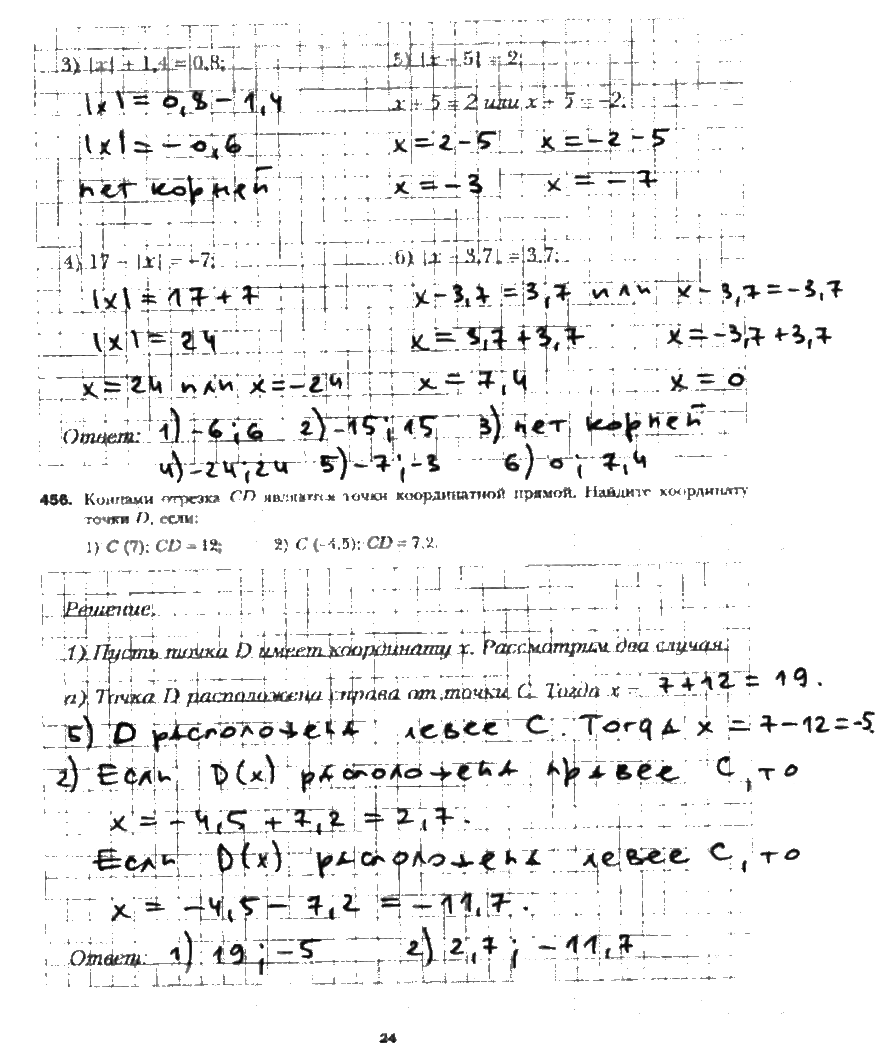 3) |x| + 1,4 = 0,8;
|x| = 0,8 - 1,4
|x| = - 0,6
нет корней
5) |x + 5| = 2;
x + 5 = 2 или x + 5 = -2.
x = 2 - 5 x = - 2 - 5
x = - 3 x = - 7
4) 17 - |x| = -7;
|x| = 17 + 7
|x| = 24
x = 24 или x = - 24
6) |x - 3,7| = 3,7;
x - 3,7 = 3,7 или x - 3,7 = - 3,7
x = 3,7 + 3,7 x = - 3,7 + 3,7
x = 7,4 x = 0
Ответ: 1) -6; 6 2) -15; 15 3) нет корней
4) -24; 24 5) -7; -3 6) 0; 7,4
456. Концами отрезка CD являются точки координатной прямой. Найдите координату
точки D, если:
1) C (7); CD = 12; 2) C (-4,5); CD = 7,2.
Решение.
1) Пусть точка D имеет координату x. Рассмотрим два случая.
а) Точка D расположена справа от точки C. Тогда x = 7 + 12 = 19.
б) D расположена левее C. Тогда x = 7 - 12 = -5.
2) Если D(x) расположена правее C, то
x = - 4,5 + 7,2 = 2,7.
Если D(x) расположена левее C, то
x = - 4,5 - 7,2 = - 11,7.
Ответ: 1) 19; -5 2) 2,7; - 11,7
24